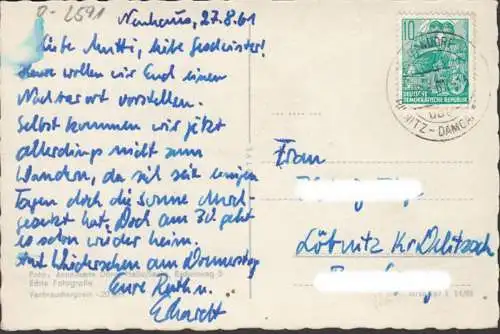 0-2591
Neuhaus, 27.8.61
Liebe Mutti, liebe Geschwister!
Heute wollen wir Euch einen
Nachbarort vorstellen.
Selbst kommen wir jetzt
allerdings nicht zum
Wandern, da sich seit einigen
Tagen doch die Sonne durch-
gesetzt hat. Doch am 30. geht
es schon wieder heim.
Auf Wiedersehen am Donnerstag
Eure Ruth u.
Ehardt
Foto:
Echte Fotografie
Verbraucherpreis -20
10
DEUTSCHE
DEMOKRATISCHE REPUBLIK
5
RIBNITZ-DAMGARTEN
Frau
Löbnitz Kr. Delitzsch